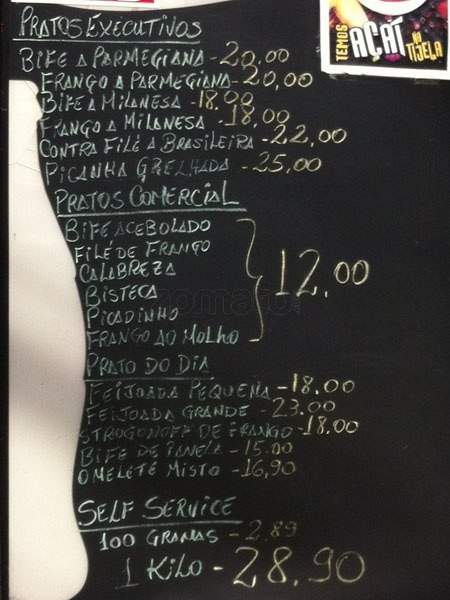 PRATOS EXECUTIVOS
TEMOS AÇAÍ NA TIJELA
BIFE A PARMEGIANA - 20,00
FRANGO A PARMEGIANA - 20,00
BIFE A MILANESA - 18,00
FRANGO A MILANESA - 18,00
CONTRA FILÉ A BRASILEIRA - 22,00
PICANHA GRELHADA - 25,00
PRATOS COMERCIAL
BIFE ACEBOLADO
FILÉ DE FRANGO
CALABREZA
12,00
BISTECA
zomato
PICADINHO
FRANGO AO MOLHO
PRATO DO DIA
FEIJOADA PEQUENA - 18,00
FEIJOADA GRANDE - 23,00
STROGONOFF DE FRANGO - 18,00
BIFE DE PANELA - 15,00
OMELETE MISTO - 16,90
SELF SERVICE
100 GRAMAS - 2,89
1 KILO - 28,90